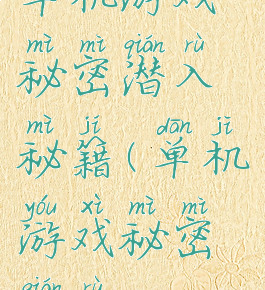 单机游戏
mì mì qián rù
秘密潜入
mì jí dān jī
秘籍(单机
yóu xì mì mì
游戏秘密
qián rù